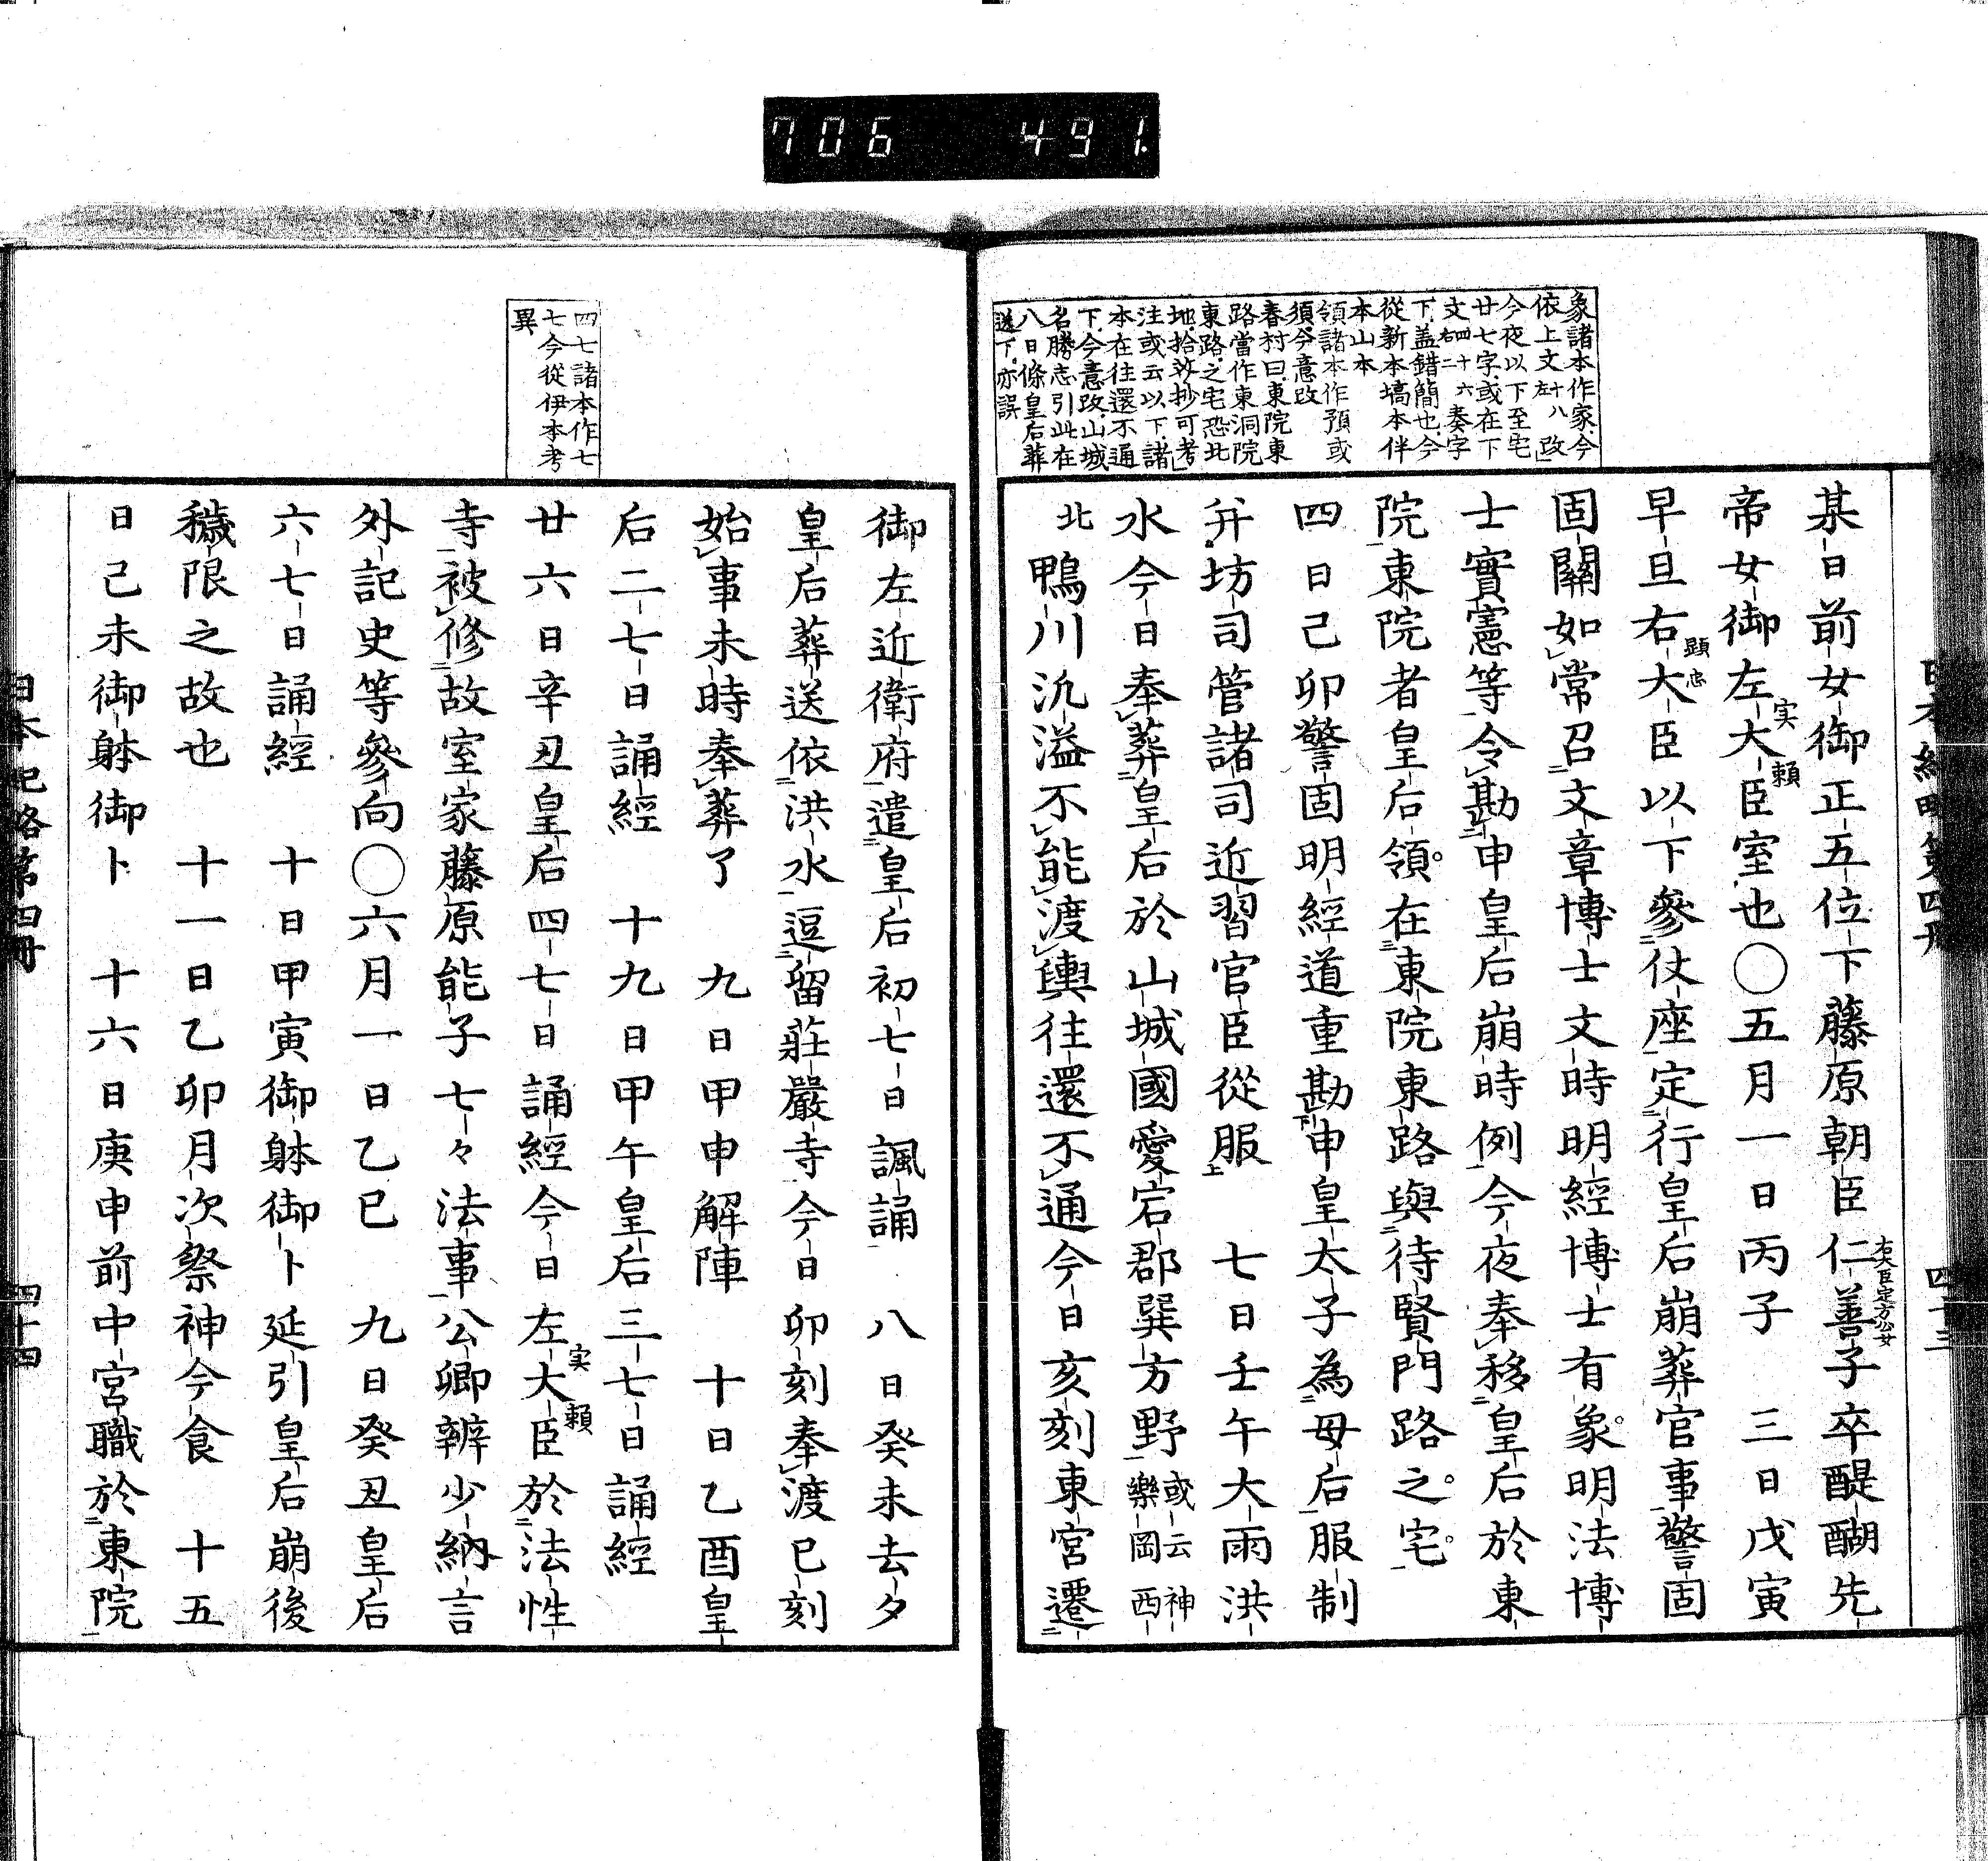 706 491
日本紀略第四冊 四十三
象諸本作家、今
依上文十八左改」
今夜以下至宅
廿七字、或在下
文四十六右二奏字
下、盖錯簡也、今
從新本塙本伴
本山本
領諸本作預或
須、今意改
春村曰、東院東
路當作東洞院
東路、之宅恐北
地、拾芥抄可考」
注或云以下、諸
本在往還不通
下、今意改、山城
名勝志引此在
八日條皇后葬
送下、亦誤
某日前女御正五位下藤原朝臣仁善子卒醍醐先
右大臣定方公女
帝女御左大臣室也〇五月一日丙子 三日戊寅
実頼
早旦右大臣以下參仗座定行皇后崩葬官事警固
顕忠
固關如常召文章博士文時明經博士有象明法博
士實憲等令勘申皇后崩時例今夜奉移皇后於東
院東院者皇后領在東院東路與待賢門路之宅
四日己卯警固明經道重勘申皇太子為母后服制
幷坊司管諸司近習官臣從服 七日壬午大雨洪
水今日奉葬皇后於山城國愛宕郡巽方野或云神樂岡西
北鴨川氾溢不能渡輿往還不通今日亥刻東宮遷
四七諸本作七
七今從伊本考
異
御左近衛府遣皇后初七日諷誦 八日癸未去夕
皇后葬送依洪水逗留莊嚴寺今日卯刻奉渡巳刻
始事未時奉葬了 九日甲申解陣 十日乙酉皇
后二七日誦經 十九日甲午皇后三七日誦經
廿六日辛丑皇后四七日誦經今日左大臣於法性
実頼
寺被修故室家藤原能子七々法事公卿辨少納言
外記史等參向〇六月一日乙巳 九日癸丑皇后
六七日誦經 十日甲寅御躰御卜延引皇后崩後
穢限之故也 十一日乙卯月次祭神今食 十五
日己未御躰御卜 十六日庚申前中宮職於東院
日本紀略第四冊 四十四